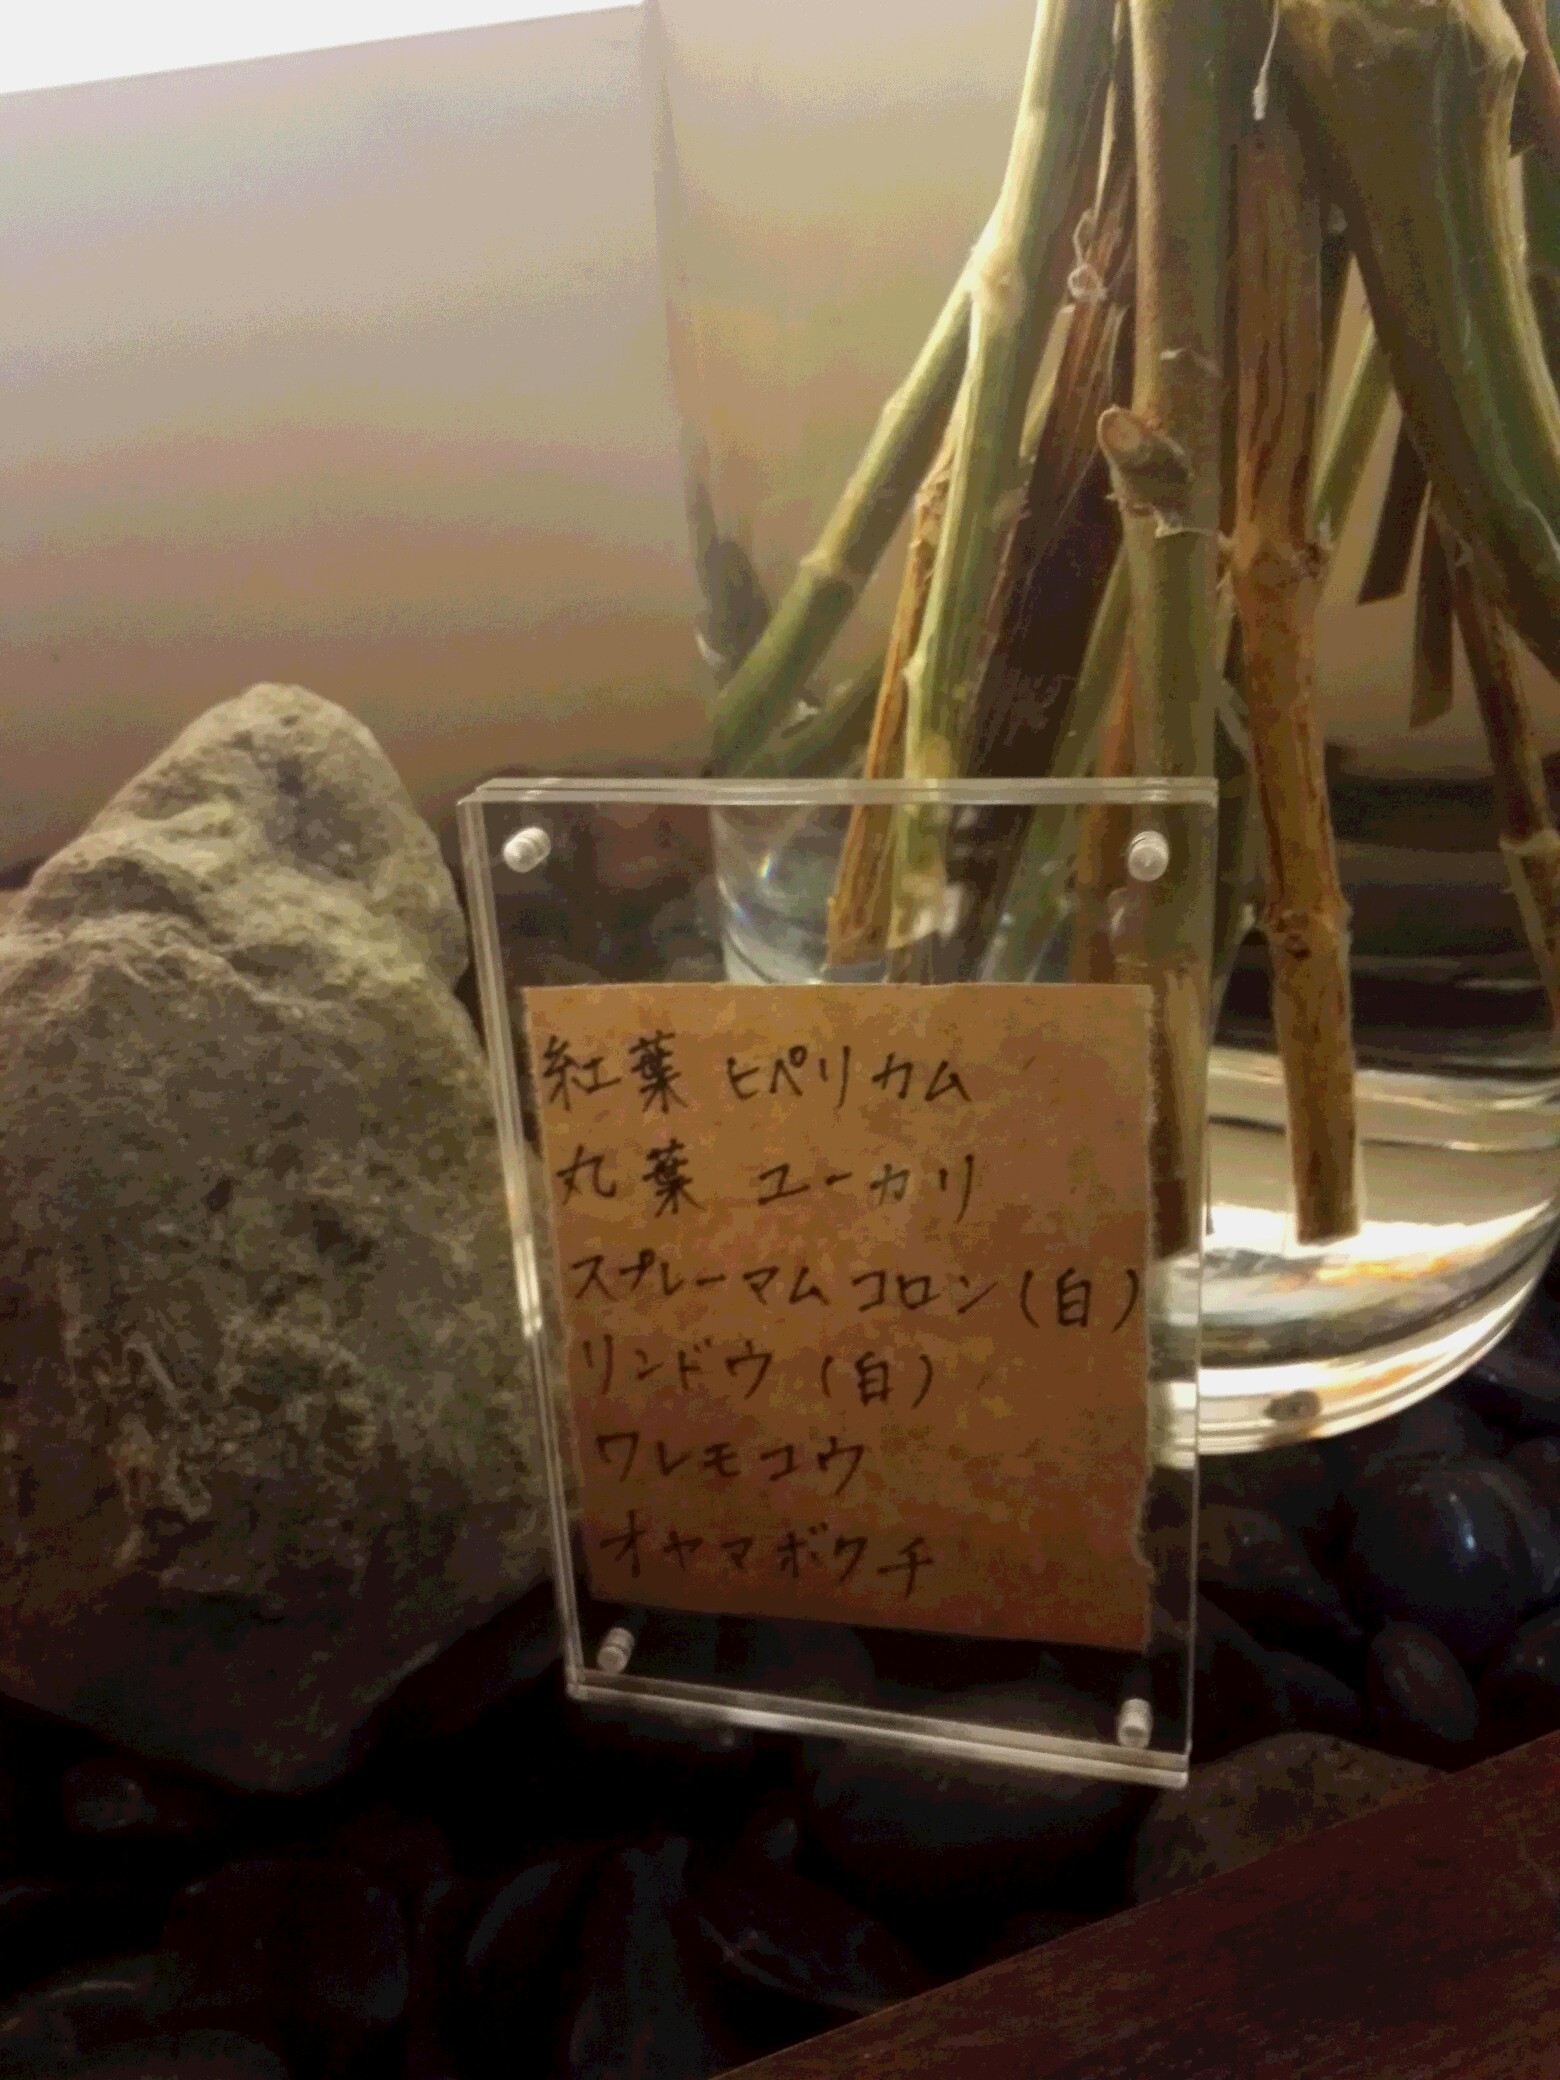 紅葉 ヒペリカム
丸葉 ユーカリ
スプレーマム コロン(白)
リンドウ(白)
ワレモコウ
オヤマボクチ